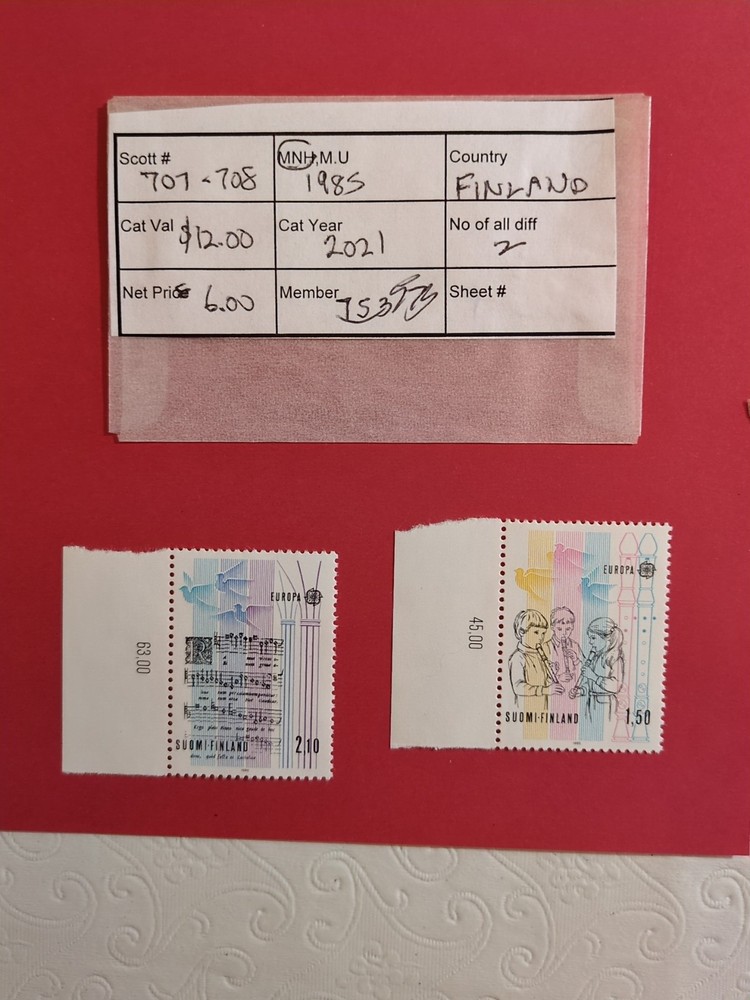 Scott #
707-708
MNH,M.U
1985
Country
FINLAND
Cat Val $12.00
Cat Year
2021
No of all diff
2
Net Price 6.00
Member
Sheet #
63,00
EUROPA
SUOMI·FINLAND
2,10
45,00
EUROPA
SUOMI·FINLAND
1,50